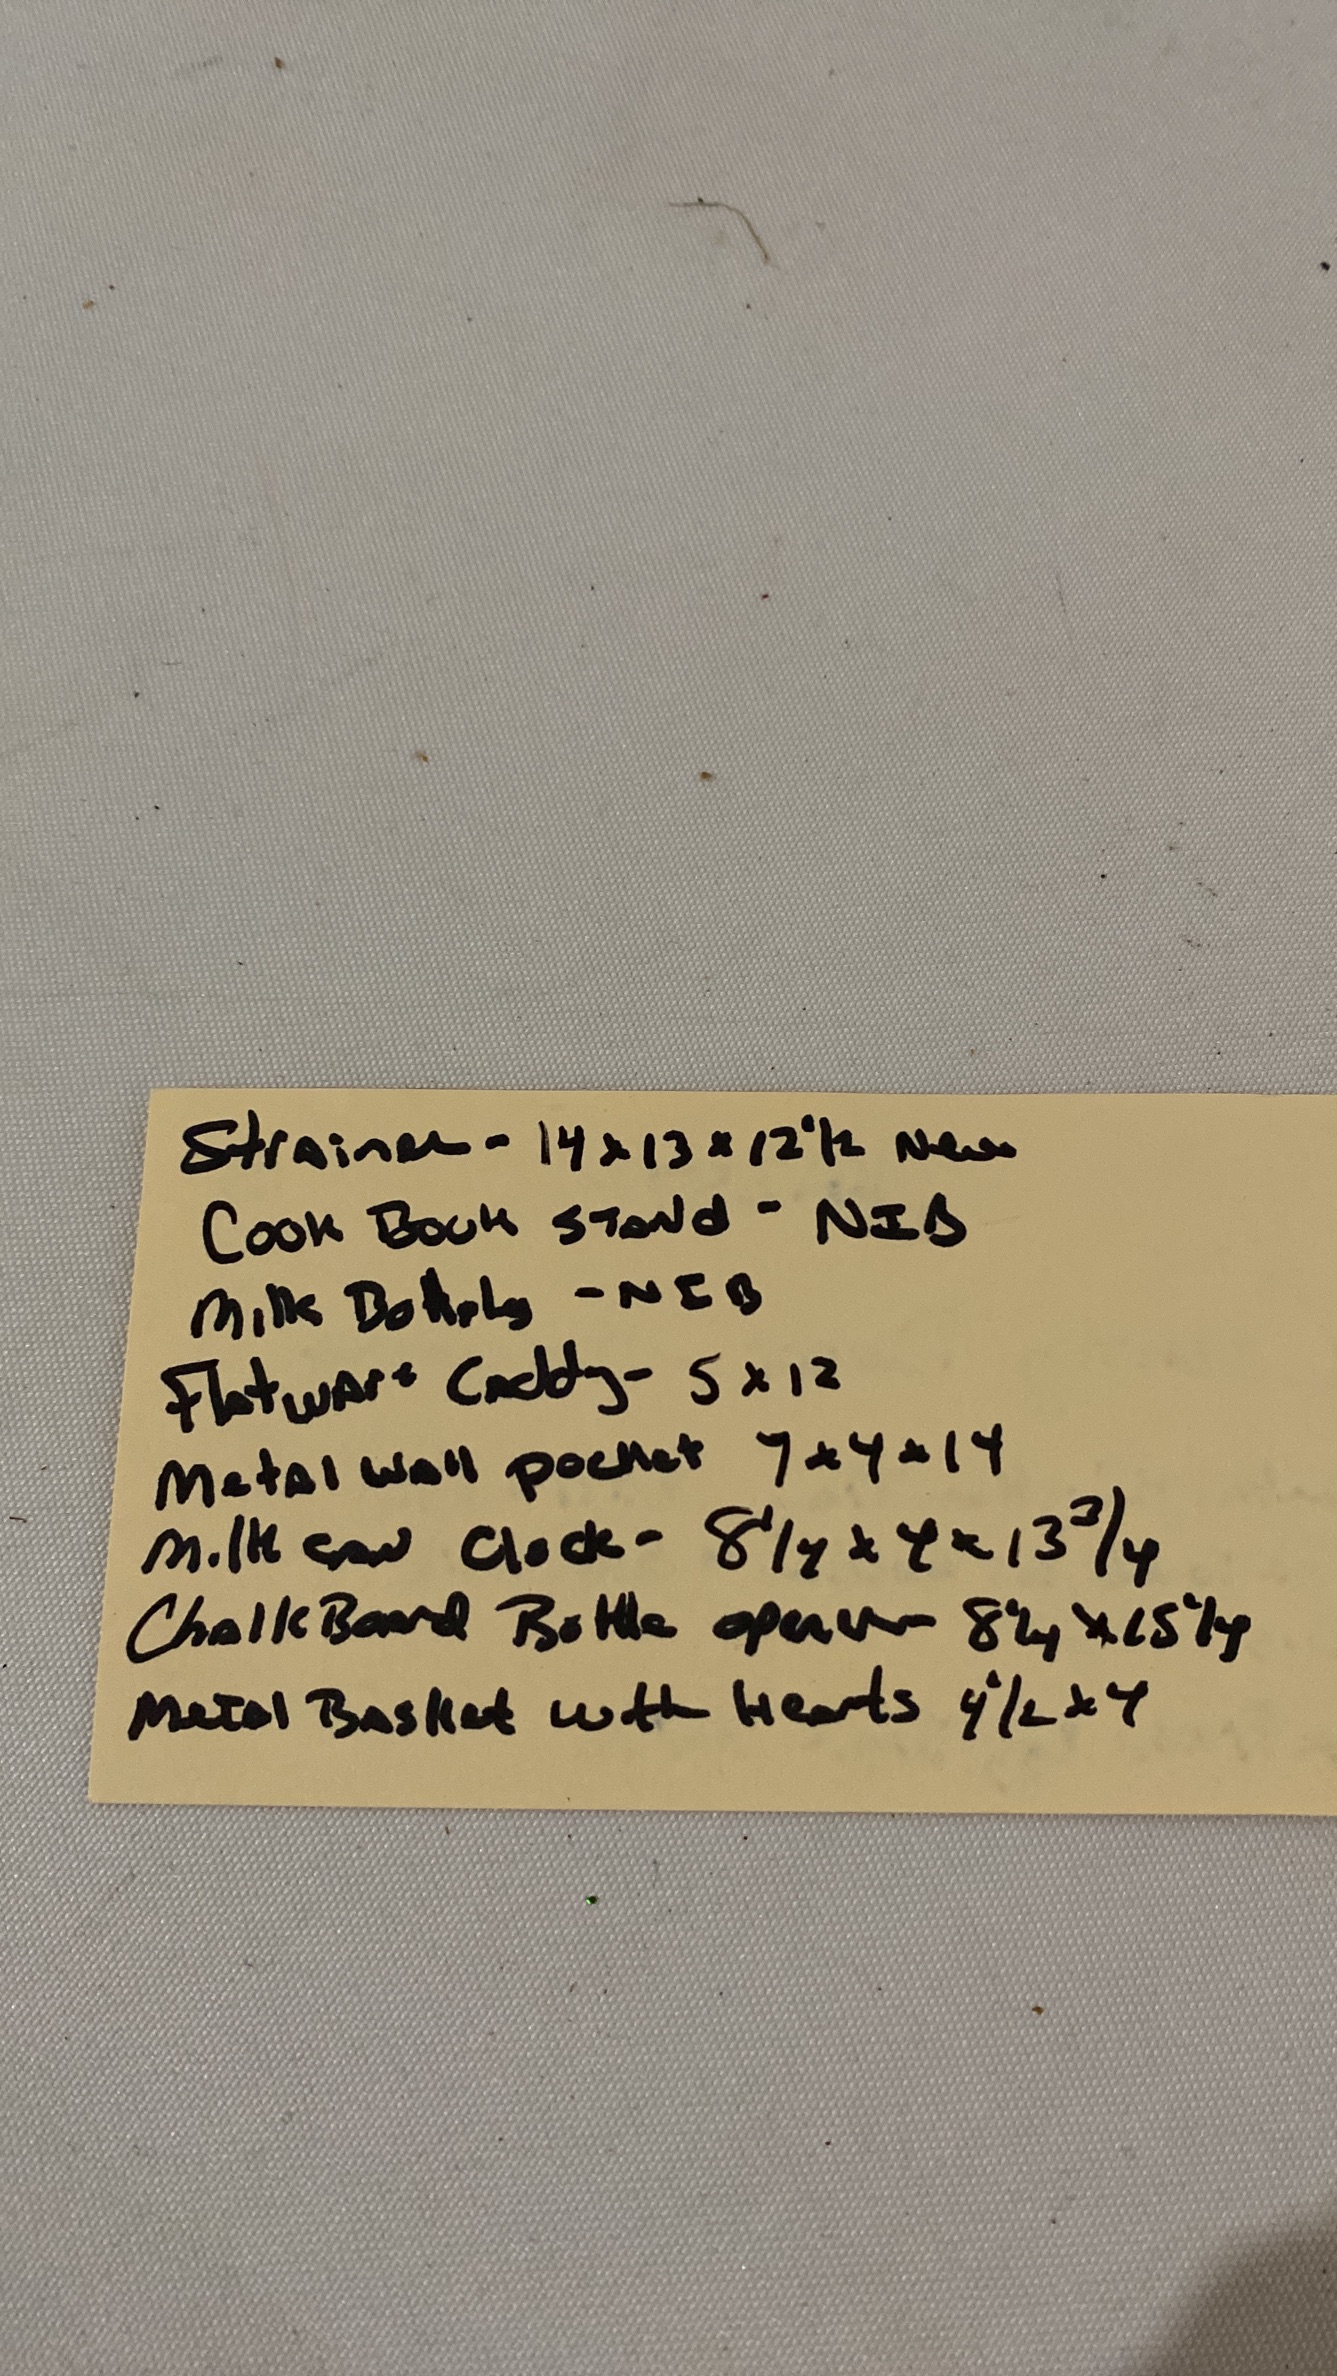 Strainer - 14 x 13 x 12 1/2 New
Cook Book Stand - NIB
Milk Bottles - NIB
Flatware Caddy - 5 x 12
Metal Wall pocket 7 x 4 x 14
Milk can Clock - 8 1/4 x 4 x 13 3/4
ChalkBoard Bottle opener 8 1/4 x 15 1/4
Metal Basket with Hearts 4 1/2 x 4